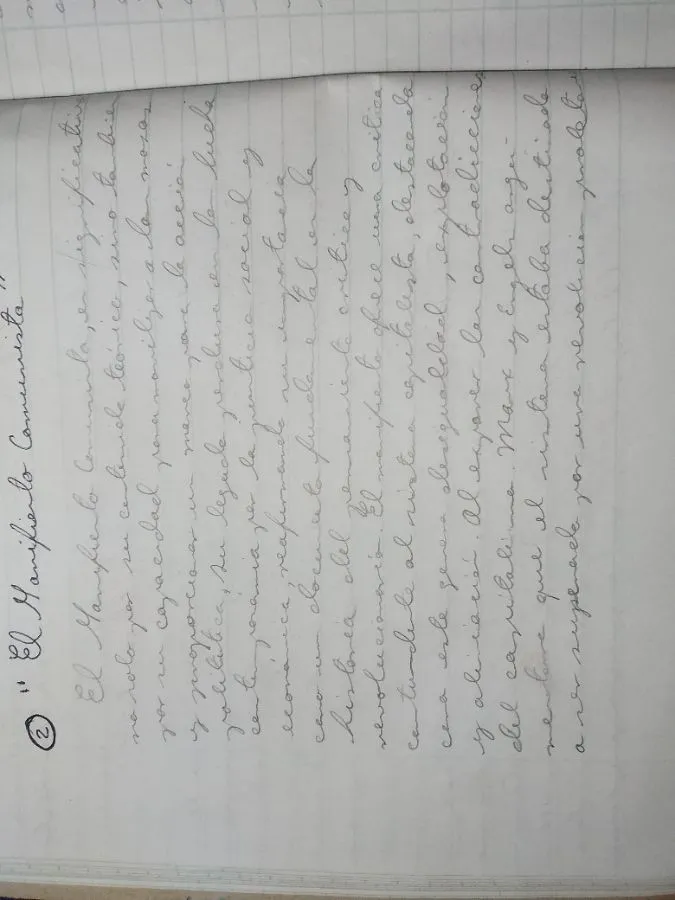 ② "El Manifiesto Comunista"
El Manifiesto Comunista, es significativo
no solo por su contenido teórico, sino tambien
por su capacidad para movilizar a las masas
y proporcionar un marco para la acción
política, su legado perdura en la lucha
contemporánea por la justicia social y
económica, reafirmando su importancia
como un documento fundamental en la
historia del pensamiento crítico y
revolucionario. El manifiesto ofrece una crítica
contundente al sistema capitalista, destacando
como este genera desigualdad, explotación
y alienación. Al exponer las contradicciones
del capitalismo. Marx y Engels argu-
mentan que el sistema estaba destinado
a ser superado por una revolución proletaria